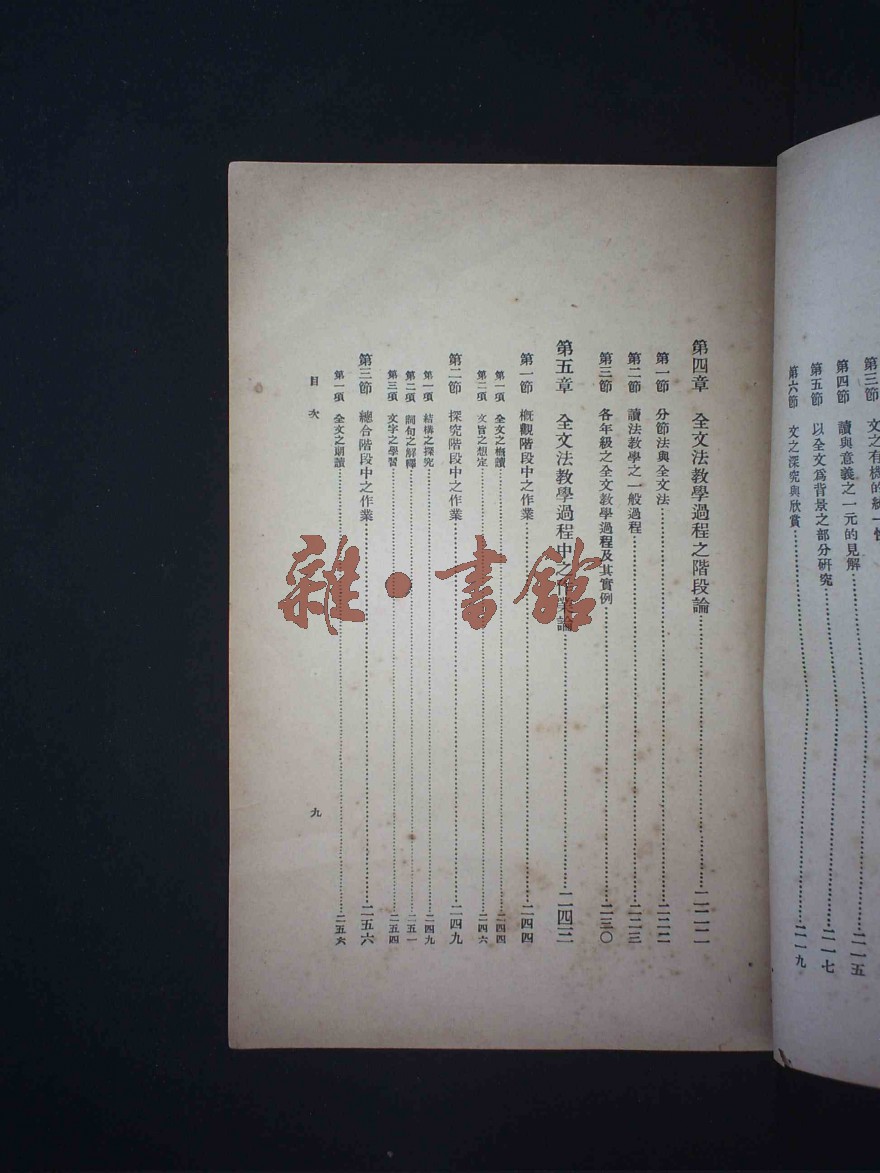 第三節 文之有機的統一性……二一五
第四節 讀與意義之一元的見解……
第五節 以全文爲背景之部分研究……二一七
第六節 文之深究與欣賞……二一九
第四章 全文法教學過程之階段論……二二二
第一節 分節法與全文法……二二二
第二節 讀法教學之一般過程……二二三
第三節 各年級之全文教學過程及其實例……二三〇
第五章 全文法教學過程中之作業論……二四三
第一節 概觀階段中之作業……二四四
第一項 全文之概讀……二四四
第二項 文旨之想定……二四六
第二節 探究階段中之作業……二四九
第一項 結構之探究……二四九
第二項 詞句之解釋……二五一
第三項 文字之學習……二五四
第三節 總合階段中之作業……二五六
第一項 全文之朗讀……二五六
目次
九
雜·書館